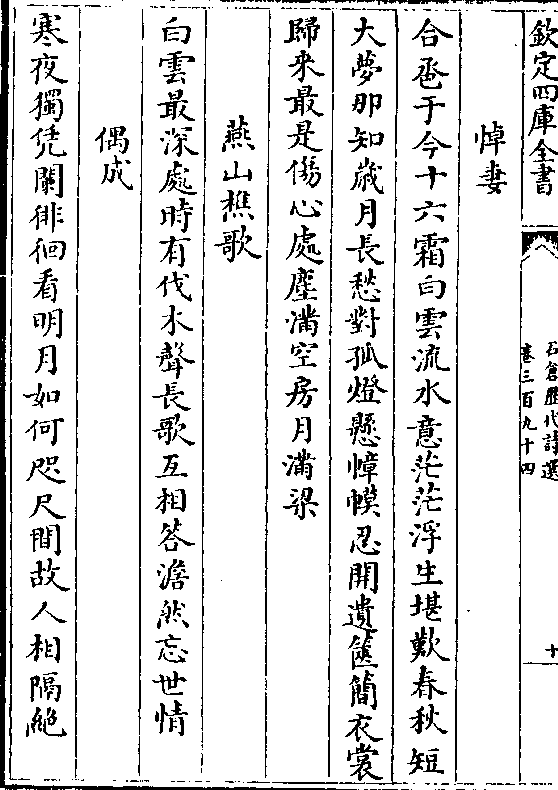 欽定四庫全書
石倉歷代詩選
卷三百九十四
十
悼妻
合巹于今十六霜白雲流水意茫茫浮生堪歎春秋短
大夢那知歲月長愁對孤燈懸幛幙忍開遺篋簡衣裳
歸來最是傷心處塵滿空房月滿梁
燕山樵歌
白雲最深處時有伐木聲長歌互相答澹然忘世情
偶成
寒夜獨凭闌徘徊看明月如何咫尺間故人相隔絶